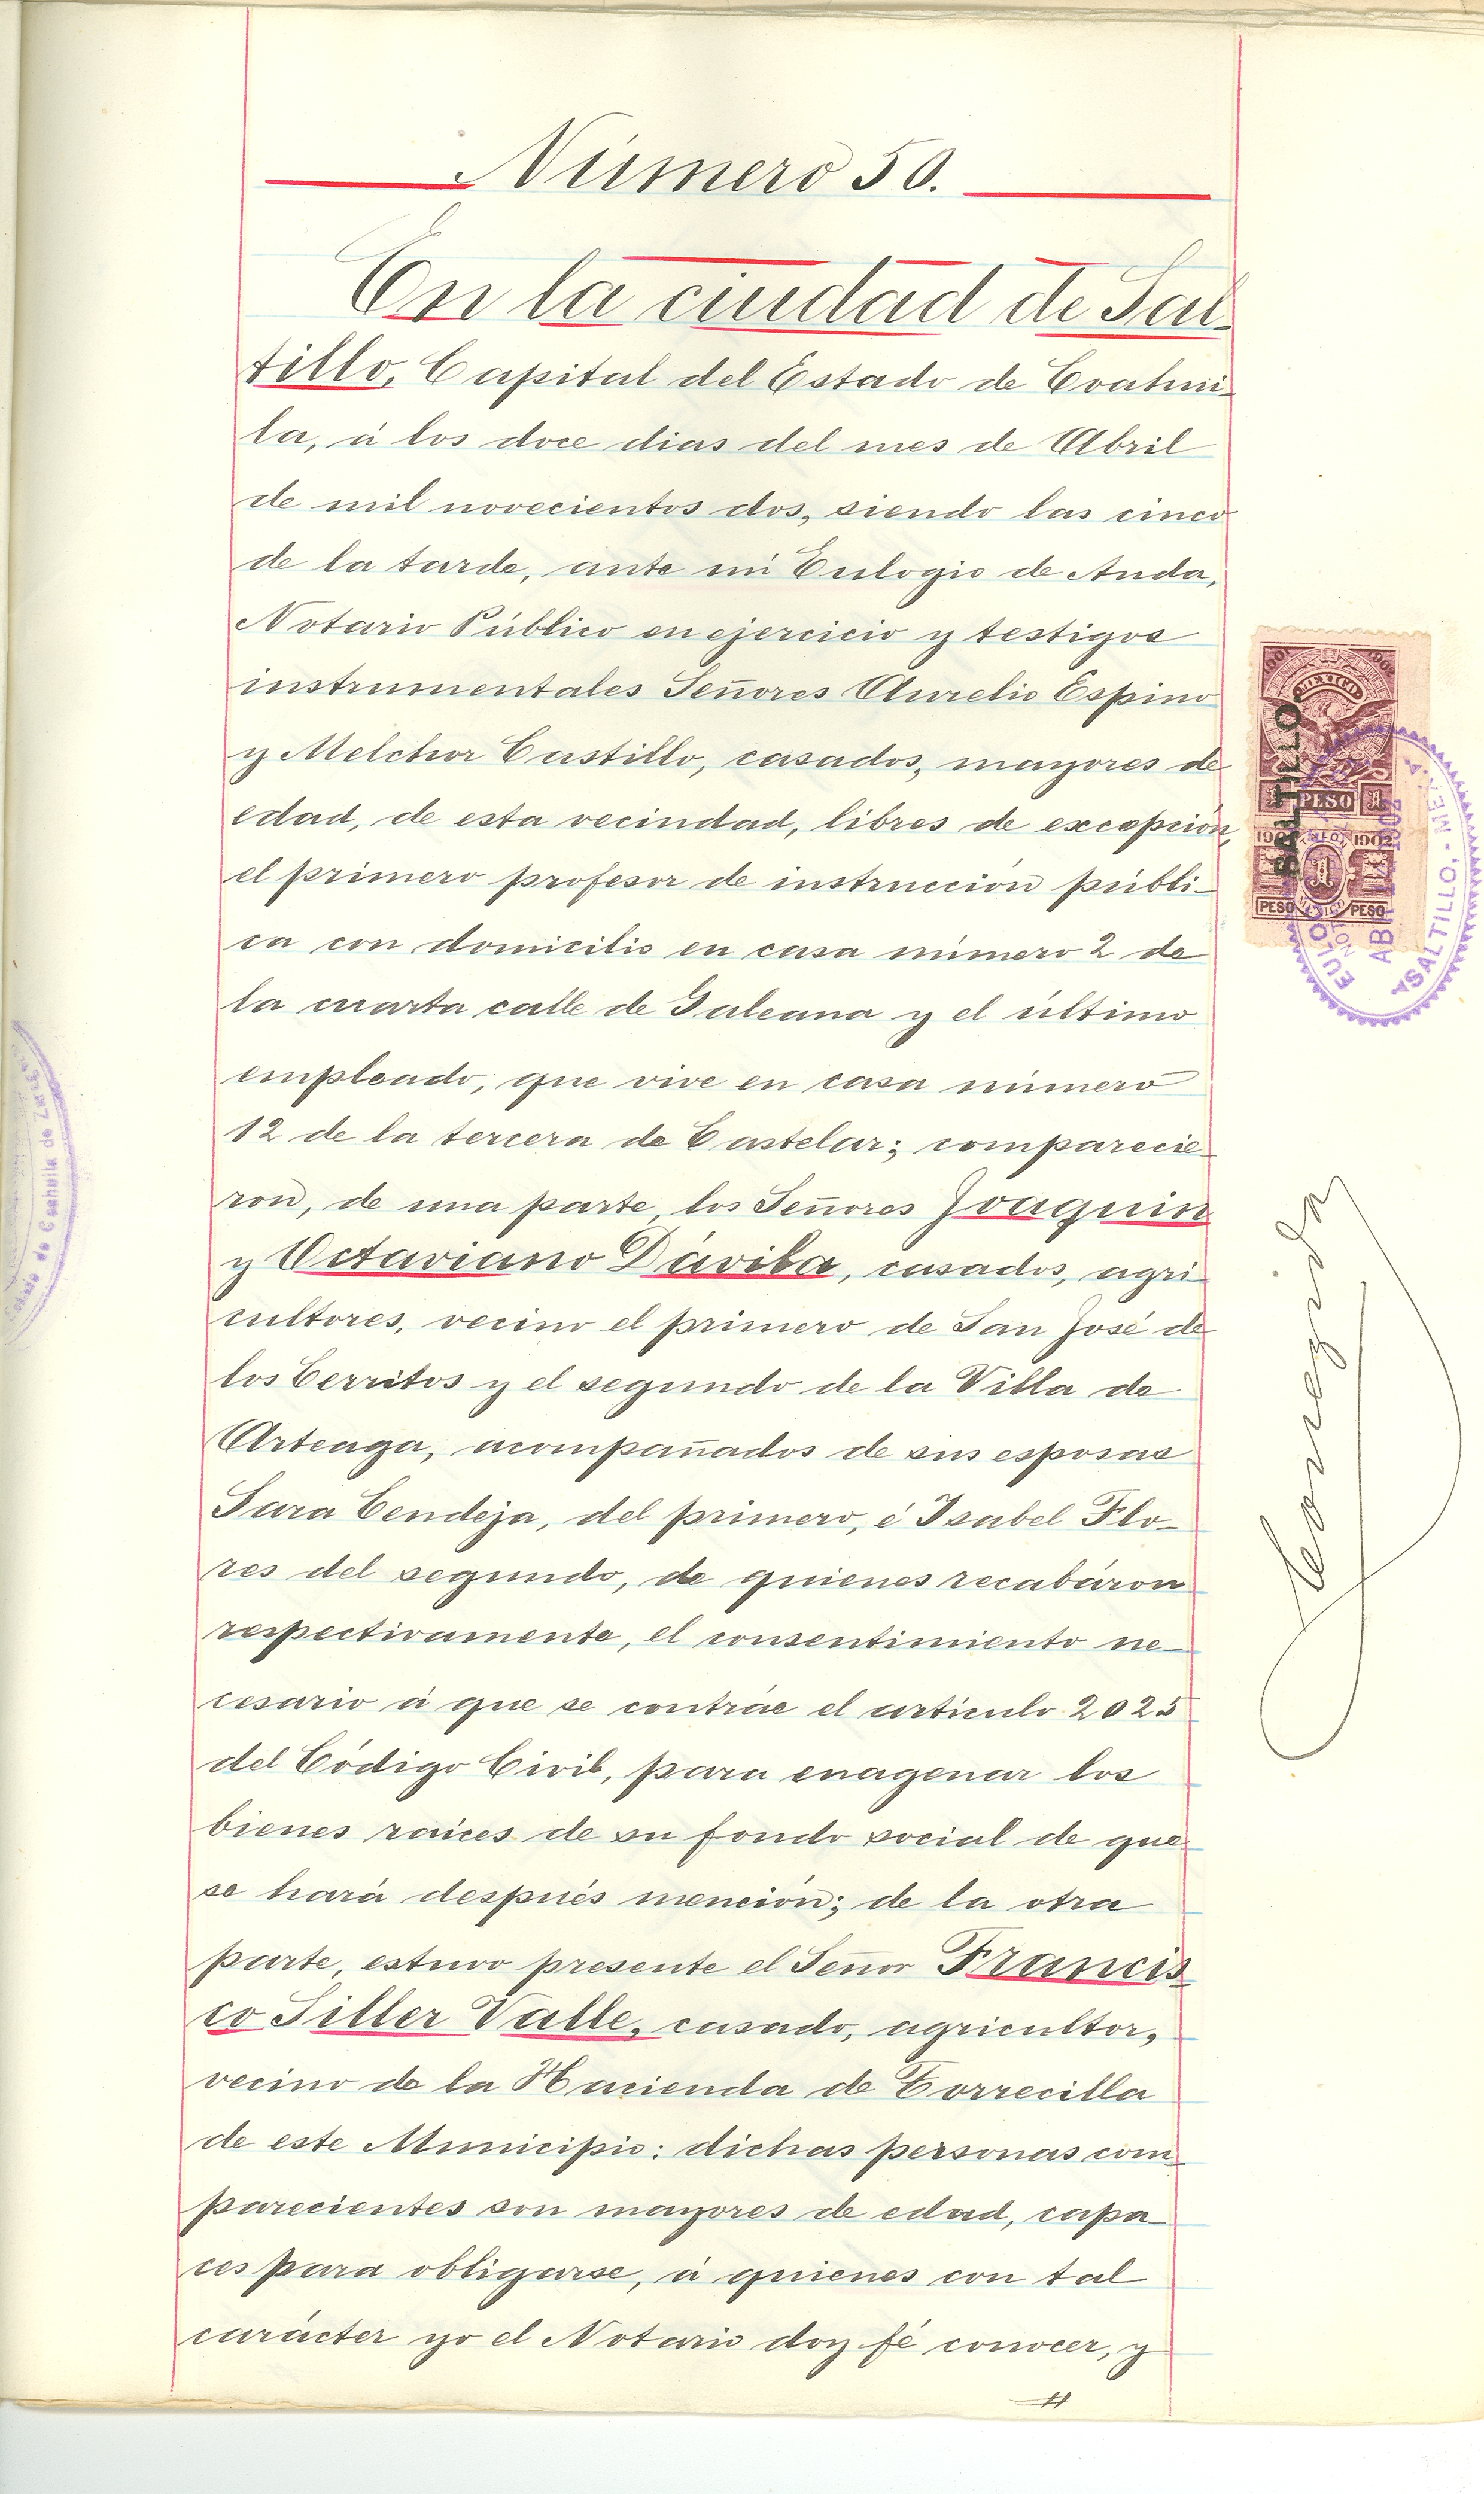 Número 50.
En la ciudad de Sal-
tillo, Capital del Estado de Coahui-
la, á los doce dias del mes de Abril
de mil novecientos dos, siendo las cinco
de la tarde, ante mi Eulogio de Anda,
Notario Público en ejercicio y testigos
instrumentales Señores Aurelio Espino
y Melchor Castillo, casados, mayores de
edad, de esta vecindad, libres de excepción,
el primero profesor de instrucción públi-
ca con domicilio en casa número 2 de
la cuarta calle de Galeana y el último
empleado, que vive en casa número
12 de la tercera de Castelar; comparecie
ron, de una parte, los Señores Joaquin
y Octaviano Dávila, casados, agri
cultores, vecino el primero de San José de
los Cerritos y el segundo de la Villa de
Arteaga, acompañados de sus esposas
Sara Cendeja, del primero, é Isabel Flo-
res del segundo, de quienes recabáron
respectivamente, el consentimiento ne-
cesario á que se contráe el artículo 2025
del Código Civil, para enagenar los
bienes raíces de su fondo social de que
se hará después mención; de la otra
parte, estuvo presente el Señor Francis
co Siller Valle, casado, agricultor,
vecino de la Hacienda de Torrecilla
de este Municipio: dichas personas com
parecientes son mayores de edad, capa-
ces para obligarse, á quienes con tal
carácter yo el Notario doy fé conocer, y
MEXICO
SALTILLO
1 PESO 1
1902
1902
1
PESO
MEXICO
PESO
ABR
SALTILLO, - MEX.
Corregida
Estado de Coahuila de